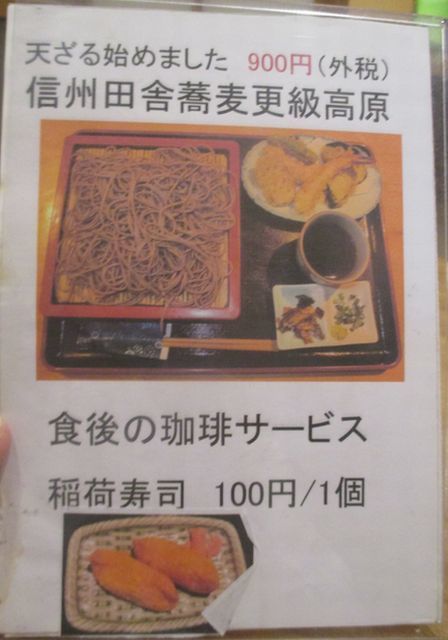 天ざる始めました 900円(外税)
信州田舎蕎麦更級高原
食後の珈琲サービス
稲荷寿司 100円/1個